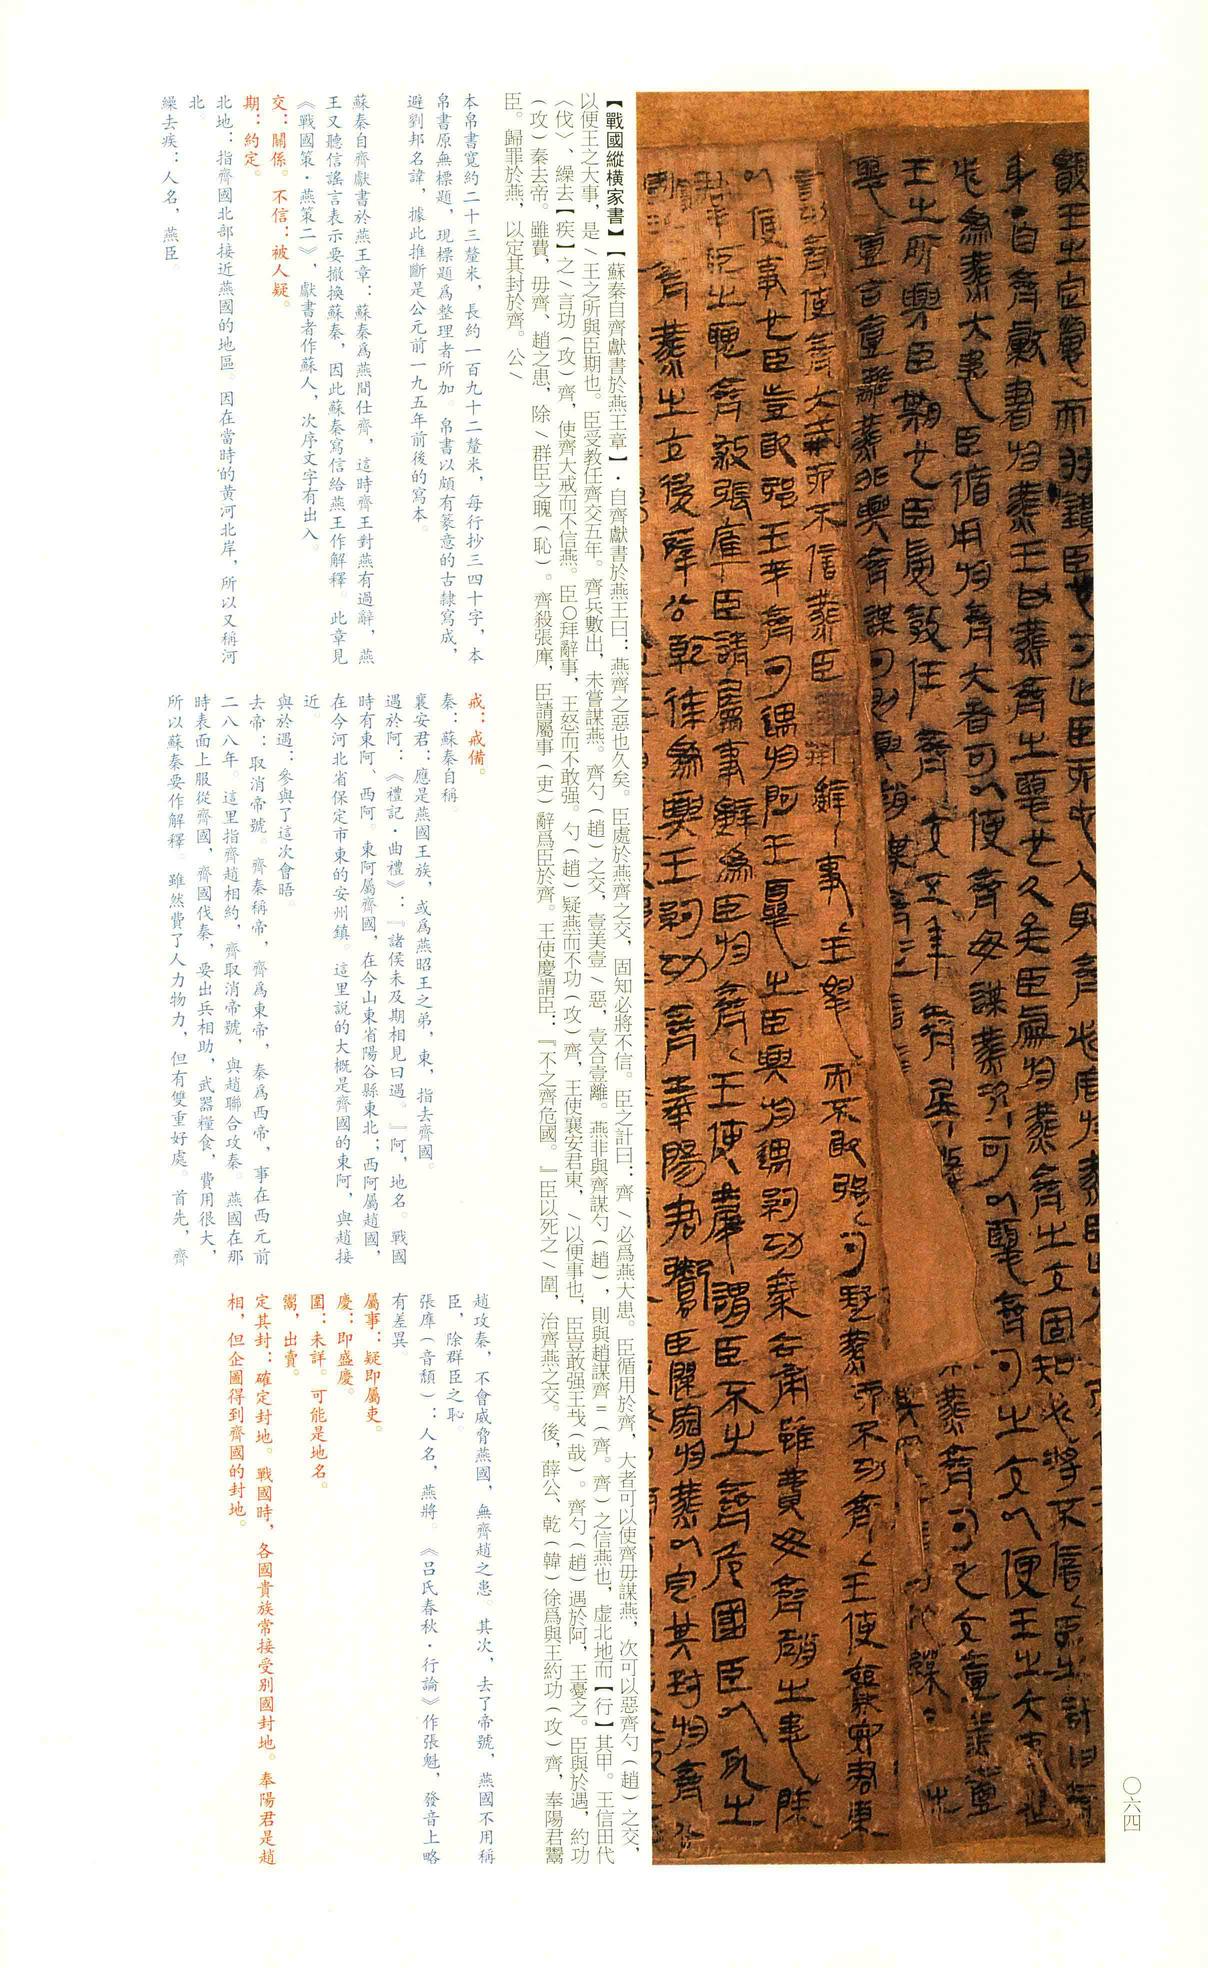 〇六四
自齊獻書於燕王曰燕齊之惡也久矣臣處於燕齊之交固知必將不信臣之計曰齊
必爲燕大患臣循用於齊大者可以使齊毋謀燕次可以惡齊勺之交以便王之大事是
王之所與臣期也臣受教任齊交五年齊兵數出
以便事也臣豈敢强王哉齊勺遇於阿王憂之臣與於遇約功秦去帝雖費毋齊趙之患除
群臣之聭齊殺張庫臣請屬事辭爲臣於齊王使慶謂臣不之齊危國臣以死之
齊燕之交後薛公乾徐爲與王約功齊奉陽君鬻臣歸罪於燕以定其封於齊公
【戰國縱橫家書】【蘇秦自齊獻書於燕王章】·自齊獻書於燕王曰：燕齊之惡也久矣。臣處於燕齊之交，固知必將不信。臣之計曰：齊/必爲燕大患。臣循用於齊，大者可以使齊毋謀燕，次可以惡齊勺（趙）之交，
以便王之大事，是/王之所與臣期也。臣受教任齊交五年。齊兵數出，未嘗謀燕。齊勺（趙）之交，壹美壹/惡，壹合壹離。燕非與齊謀勺（趙），則與趙謀齊＝（齊。齊）之信燕也，虛北地而【行】其甲。王信田代
〈伐〉、繰去【疾】之/言功（攻）齊，使齊大戒而不信燕。臣〇拜辭事，王怒而不敢强。勺（趙）疑燕而不功（攻）齊，王使襄安君東，/以便事也，臣豈敢强王𢦏（哉）。齊勺（趙）遇於阿，王憂之。臣與於遇，約功
（攻）秦去帝。雖費，毋齊、趙之患，除/群臣之聭（恥）。齊殺張庫，臣請屬事（吏）辭爲臣於齊。王使慶謂臣：『不之齊危國。』臣以死之/圍，治齊燕之交。後，薛公、乾（韓）徐爲與王約功（攻）齊，奉陽君鬻
臣。歸罪於燕，以定其封於齊。公/
本帛書寬約二十三釐米，長約一百九十二釐米，每行抄三四十字，本
帛書原無標題，現標題爲整理者所加。帛書以頗有篆意的古隸寫成，
避劉邦名諱，據此推斷是公元前一九五年前後的寫本。
蘇秦自齊獻書於燕王章：蘇秦爲燕間仕齊，這時齊王對燕有過辭，燕
王又聽信謠言表示要撤換蘇秦，因此蘇秦寫信給燕王作解釋。此章見
《戰國策·燕策二》，獻書者作蘇人，次序文字有出入。
交：關係。不信：被人疑。
期：約定。
北地：指齊國北部接近燕國的地區。因在當時的黃河北岸，所以又稱河
北。
繰去疾：人名，燕臣。
戒：戒備。
秦：蘇秦自稱。
襄安君：應是燕國王族，或爲燕昭王之弟，東，指去齊國。
遇於阿：《禮記·曲禮》：『諸侯未及期相見曰遇。』阿，地名。戰國
時有東阿、西阿。東阿屬齊國，在今山東省陽谷縣東北；西阿屬趙國，
在今河北省保定市東的安州鎮。這里說的大概是齊國的東阿，與趙接
近。
與於遇：參與了這次會晤。
去帝：取消帝號。齊秦稱帝，齊爲東帝，秦爲西帝，事在西元前
二八八年。這里指齊趙相約，齊取消帝號，與趙聯合攻秦。燕國在那
時表面上服從齊國，齊國伐秦，要出兵相助，武器糧食，費用很大，
所以蘇秦要作解釋。雖然費了人力物力，但有雙重好處。首先，齊
趙攻秦，不會威脅燕國，無齊趙之患。其次，去了帝號，燕國不用稱
臣，除群臣之恥。
張庫（音頹）：人名，燕將。《吕氏春秋·行論》作張魁，發音上略
有差異。
屬事：疑即屬吏。
慶：即盛慶。
圍：未詳。可能是地名。
鬻，出賣。
定其封：確定封地。戰國時，各國貴族常接受别國封地。奉陽君是趙
相，但企圖得到齊國的封地。